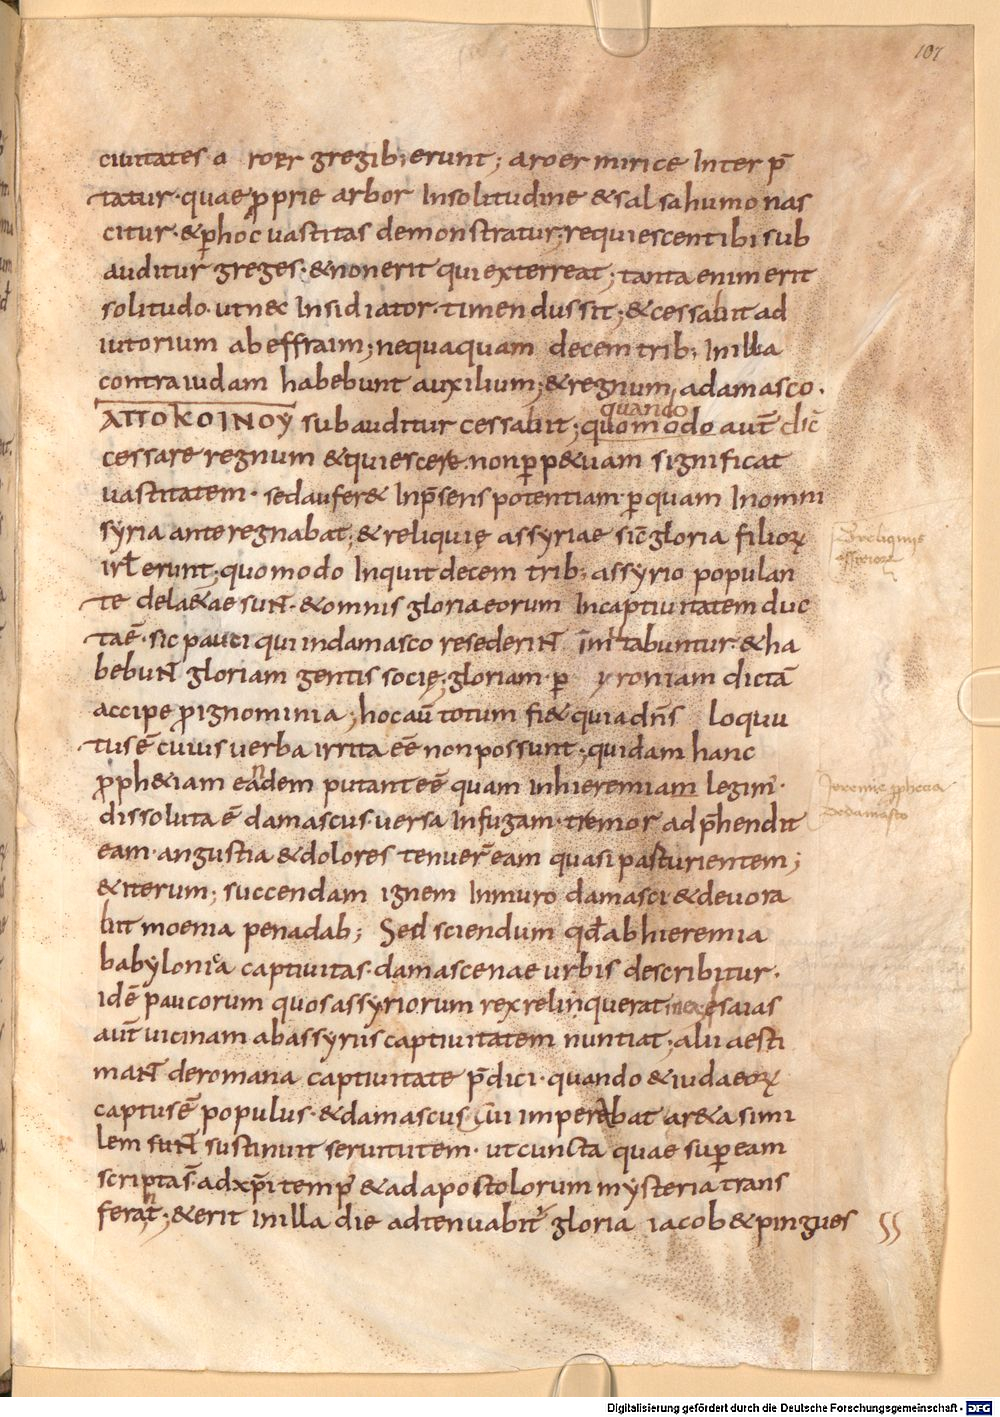 107
ciuitates a roer gregib; erunt; aroer mirice Inter p̄
tatur · quae ꝓprie arbor Insolitudine & salsa humo nas
citur · & ꝑ hoc uastitas demonstratur; requiescent ibi sub
auditur greges · & non erit qui exterreat; tanta enim erit
solitudo · ut nec Insidiator · timendus sit; & cessabit ad
iutorium ab effraim; nequaquam decem trib; In illa
contra iudam habebunt auxilium; & regnum adamasco ·
ΑΠΟΚΟΙΝΟΥ subauditur cessabit; quomodo aut̄ dic̄
quando
cessare regnum & quiescere · non ꝑp&uam significat
uastitatem · sed aufer& In p̄sens potentiam · ꝑ quam In omni
syria ante regnabat; & reliquię assyriae sic̄ gloria filioꝝ
irl̄ erunt; quomodo Inquit decem trib; assyrio populan
te dela&ae sunt · & omnis gloria eorum In captiuitatem duc
ta ē · sic pauci qui in damasco resederint imitabuntur · & ha
bebunt gloriam gentis socię; gloriam · ꝑ yroniam dictā
accipe ꝓ ignominia; hoc aut̄ totum fi& quia dn̄s loquu
tus ē cuius uerba irrita eē non possunt; quidam hanc
ꝓph&iam eandem putant eē quam in hieremiam legim̄ ·
dissoluta ē damascus · uersa In fugam · tremor adp̄hendit
eam · angustia & dolores tenuer̄ eam quasi pasturientem;
& iterum; succendam ignem In muro damasci & deuora
bit moenia penadab; Sed sciendum qd̄ ab hieremia
babylonica captiuitas · damascenae urbis describitur ·
idē paucorum quos assyriorum rex relinquerat esaias
aut̄ uicinam ab assyriis captiuitatem nuntiat; alii aesti
mant de romana captiuitate p̄dici · quando & iudaeoꝝ
captus ē populus · & damascus cui imperabat ar&a simi
lem sustinuit seruitutem · ut cuncta quae suꝑ eam
scripta s̄ · ad xp̄i temp̄ & ad apostolorum mysteria trans
ferant; & erit in illa die adtenuabit gloria iacob & pingues
Reliquiis
Jeremie prophetia
de damasco
Digitalisierung gefördert durch die Deutsche Forschungsgemeinschaft - DFG